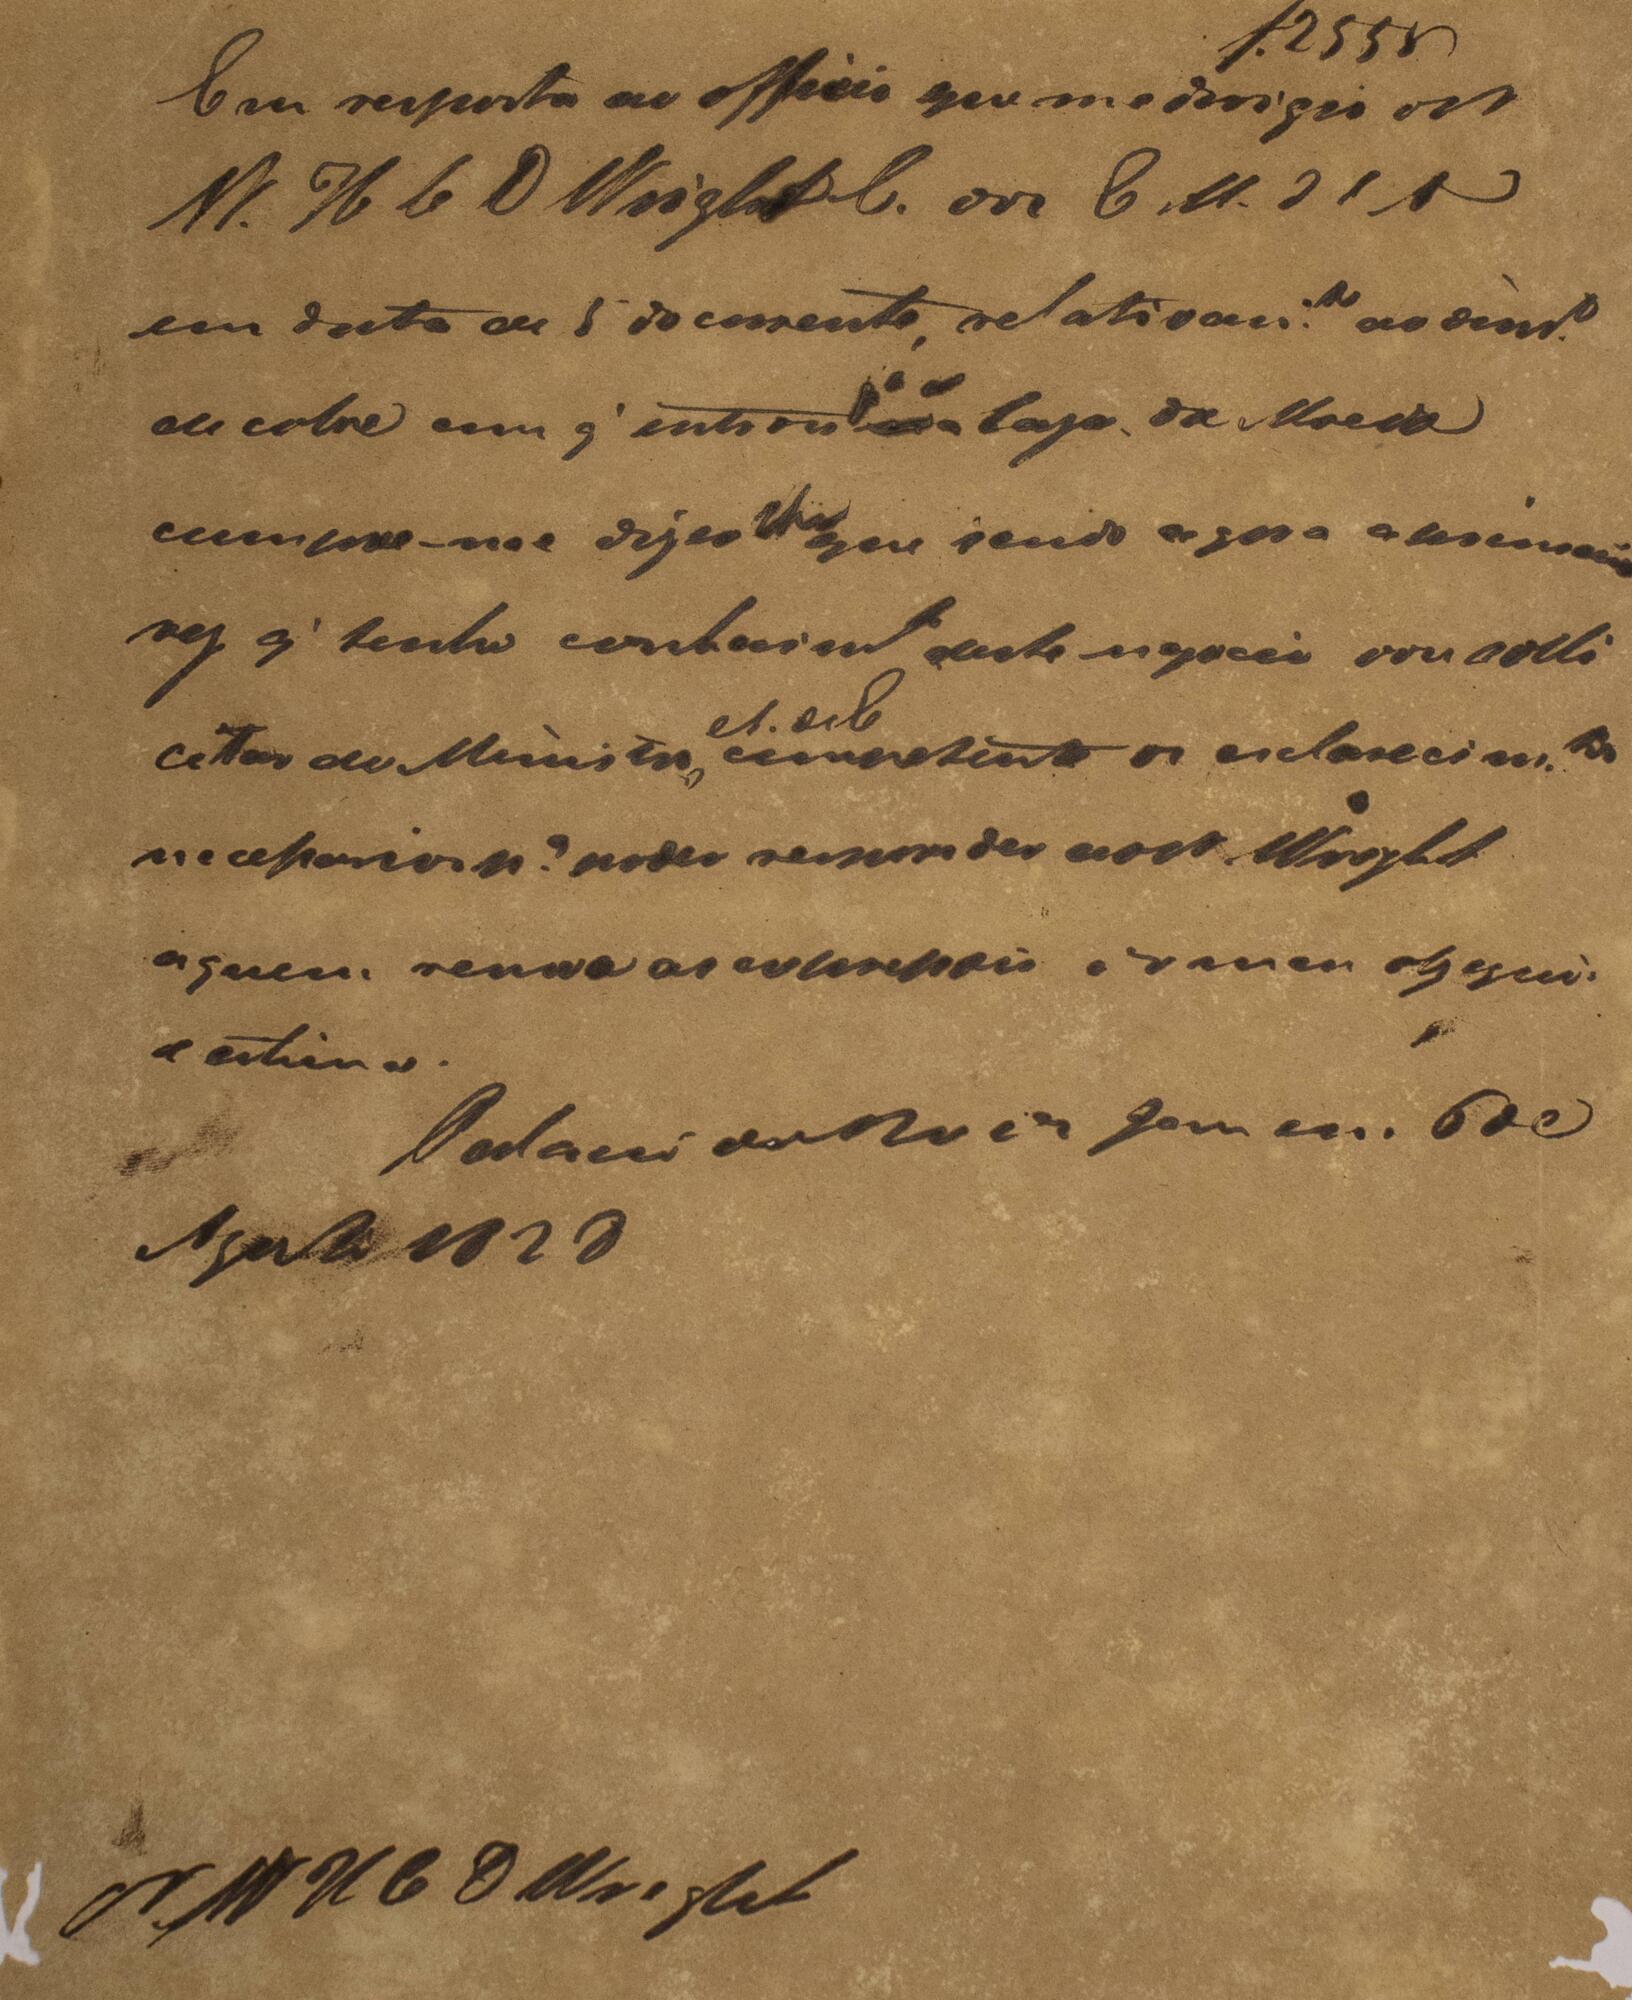 f. 255v
Em resposta ao officio que me dirigio o Sr
W. H. C. D Wright C. dos E. U. d A
em data de 5 do corrente, relativam.to ao dinhr.o
de cobre em q' entrou a Caza da Moeda
cumpre-me dizer lhe que sendo agora a primeira
vez q' tenho conhecim.to deste negocio vou solli
citar do Ministro, et. d'E competente os esclarecim.tos
necessarios p.a poder responder ao Sr. Wright
aquem renova as expressões de
e estima.
Palacio do Rio de Jan em 6 de
Agosto 1828
Sr. W H C D Wright